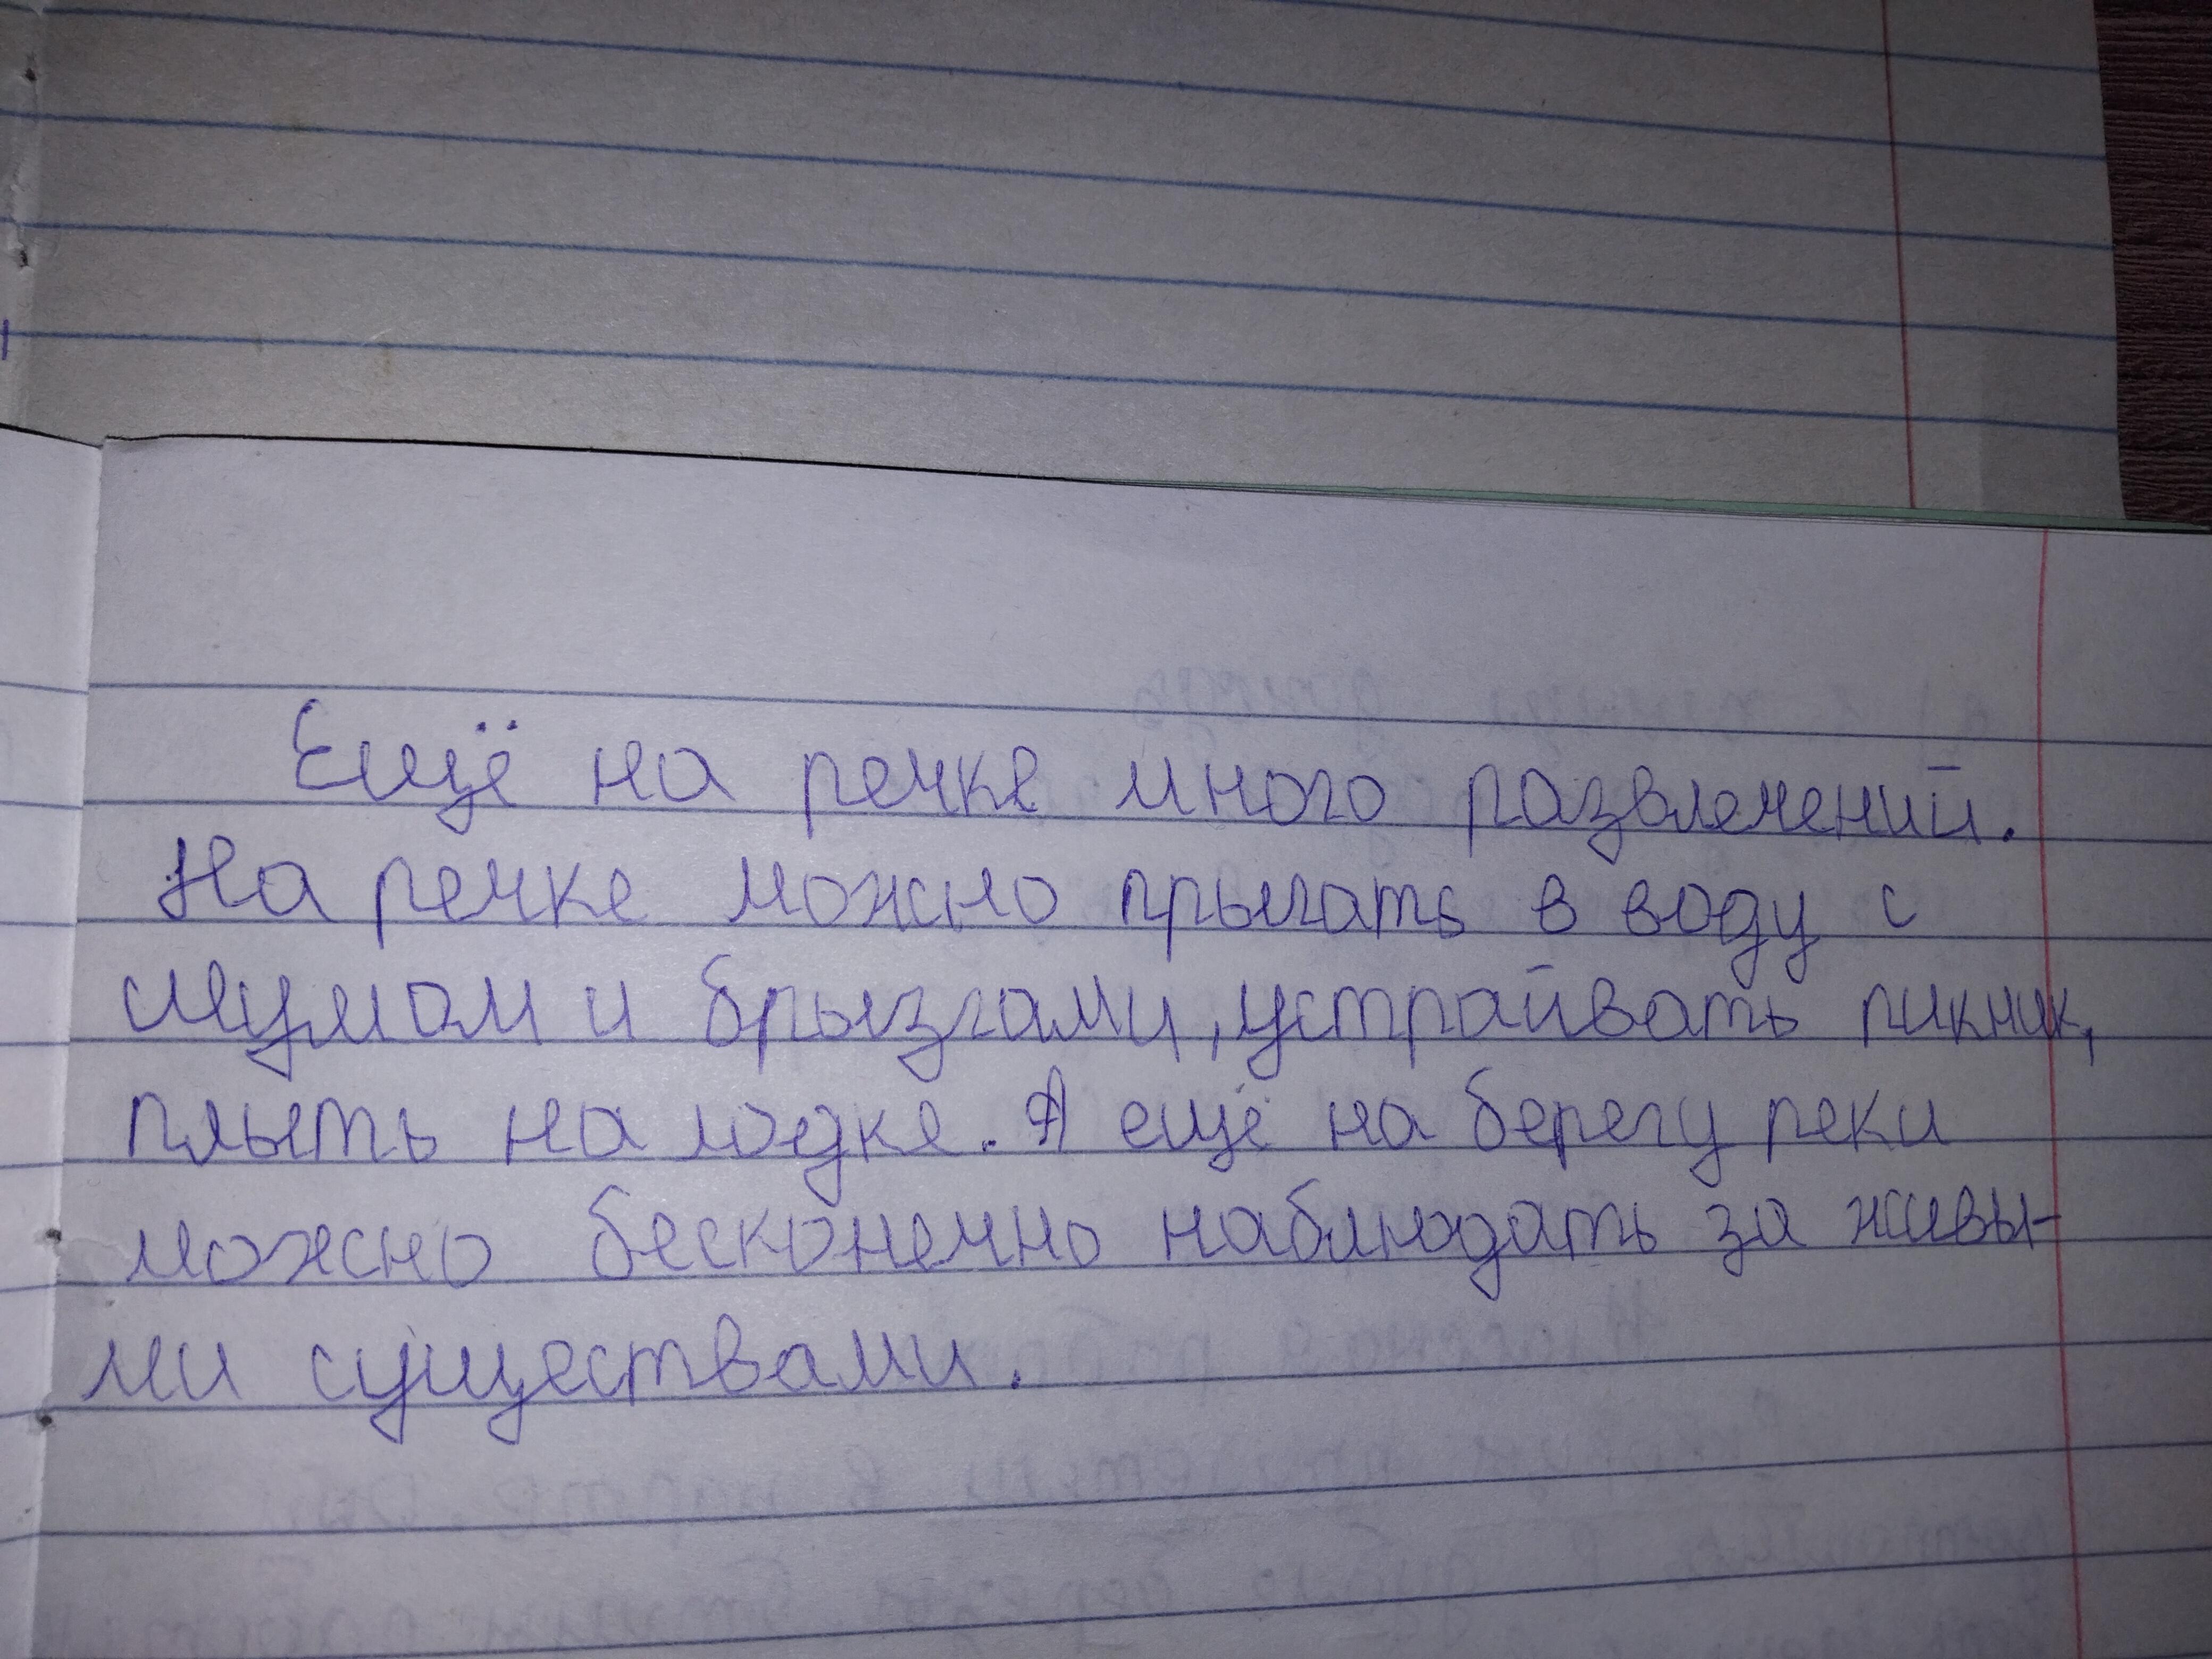 Ещё на речке много развлечений.
На речке можно прыгать в воду с
шумом и брызгами, устрайвать пикник,
плыть на лодке. А ещё на берегу реки
можно бесконечно наблюдать за живы-
ми существами.